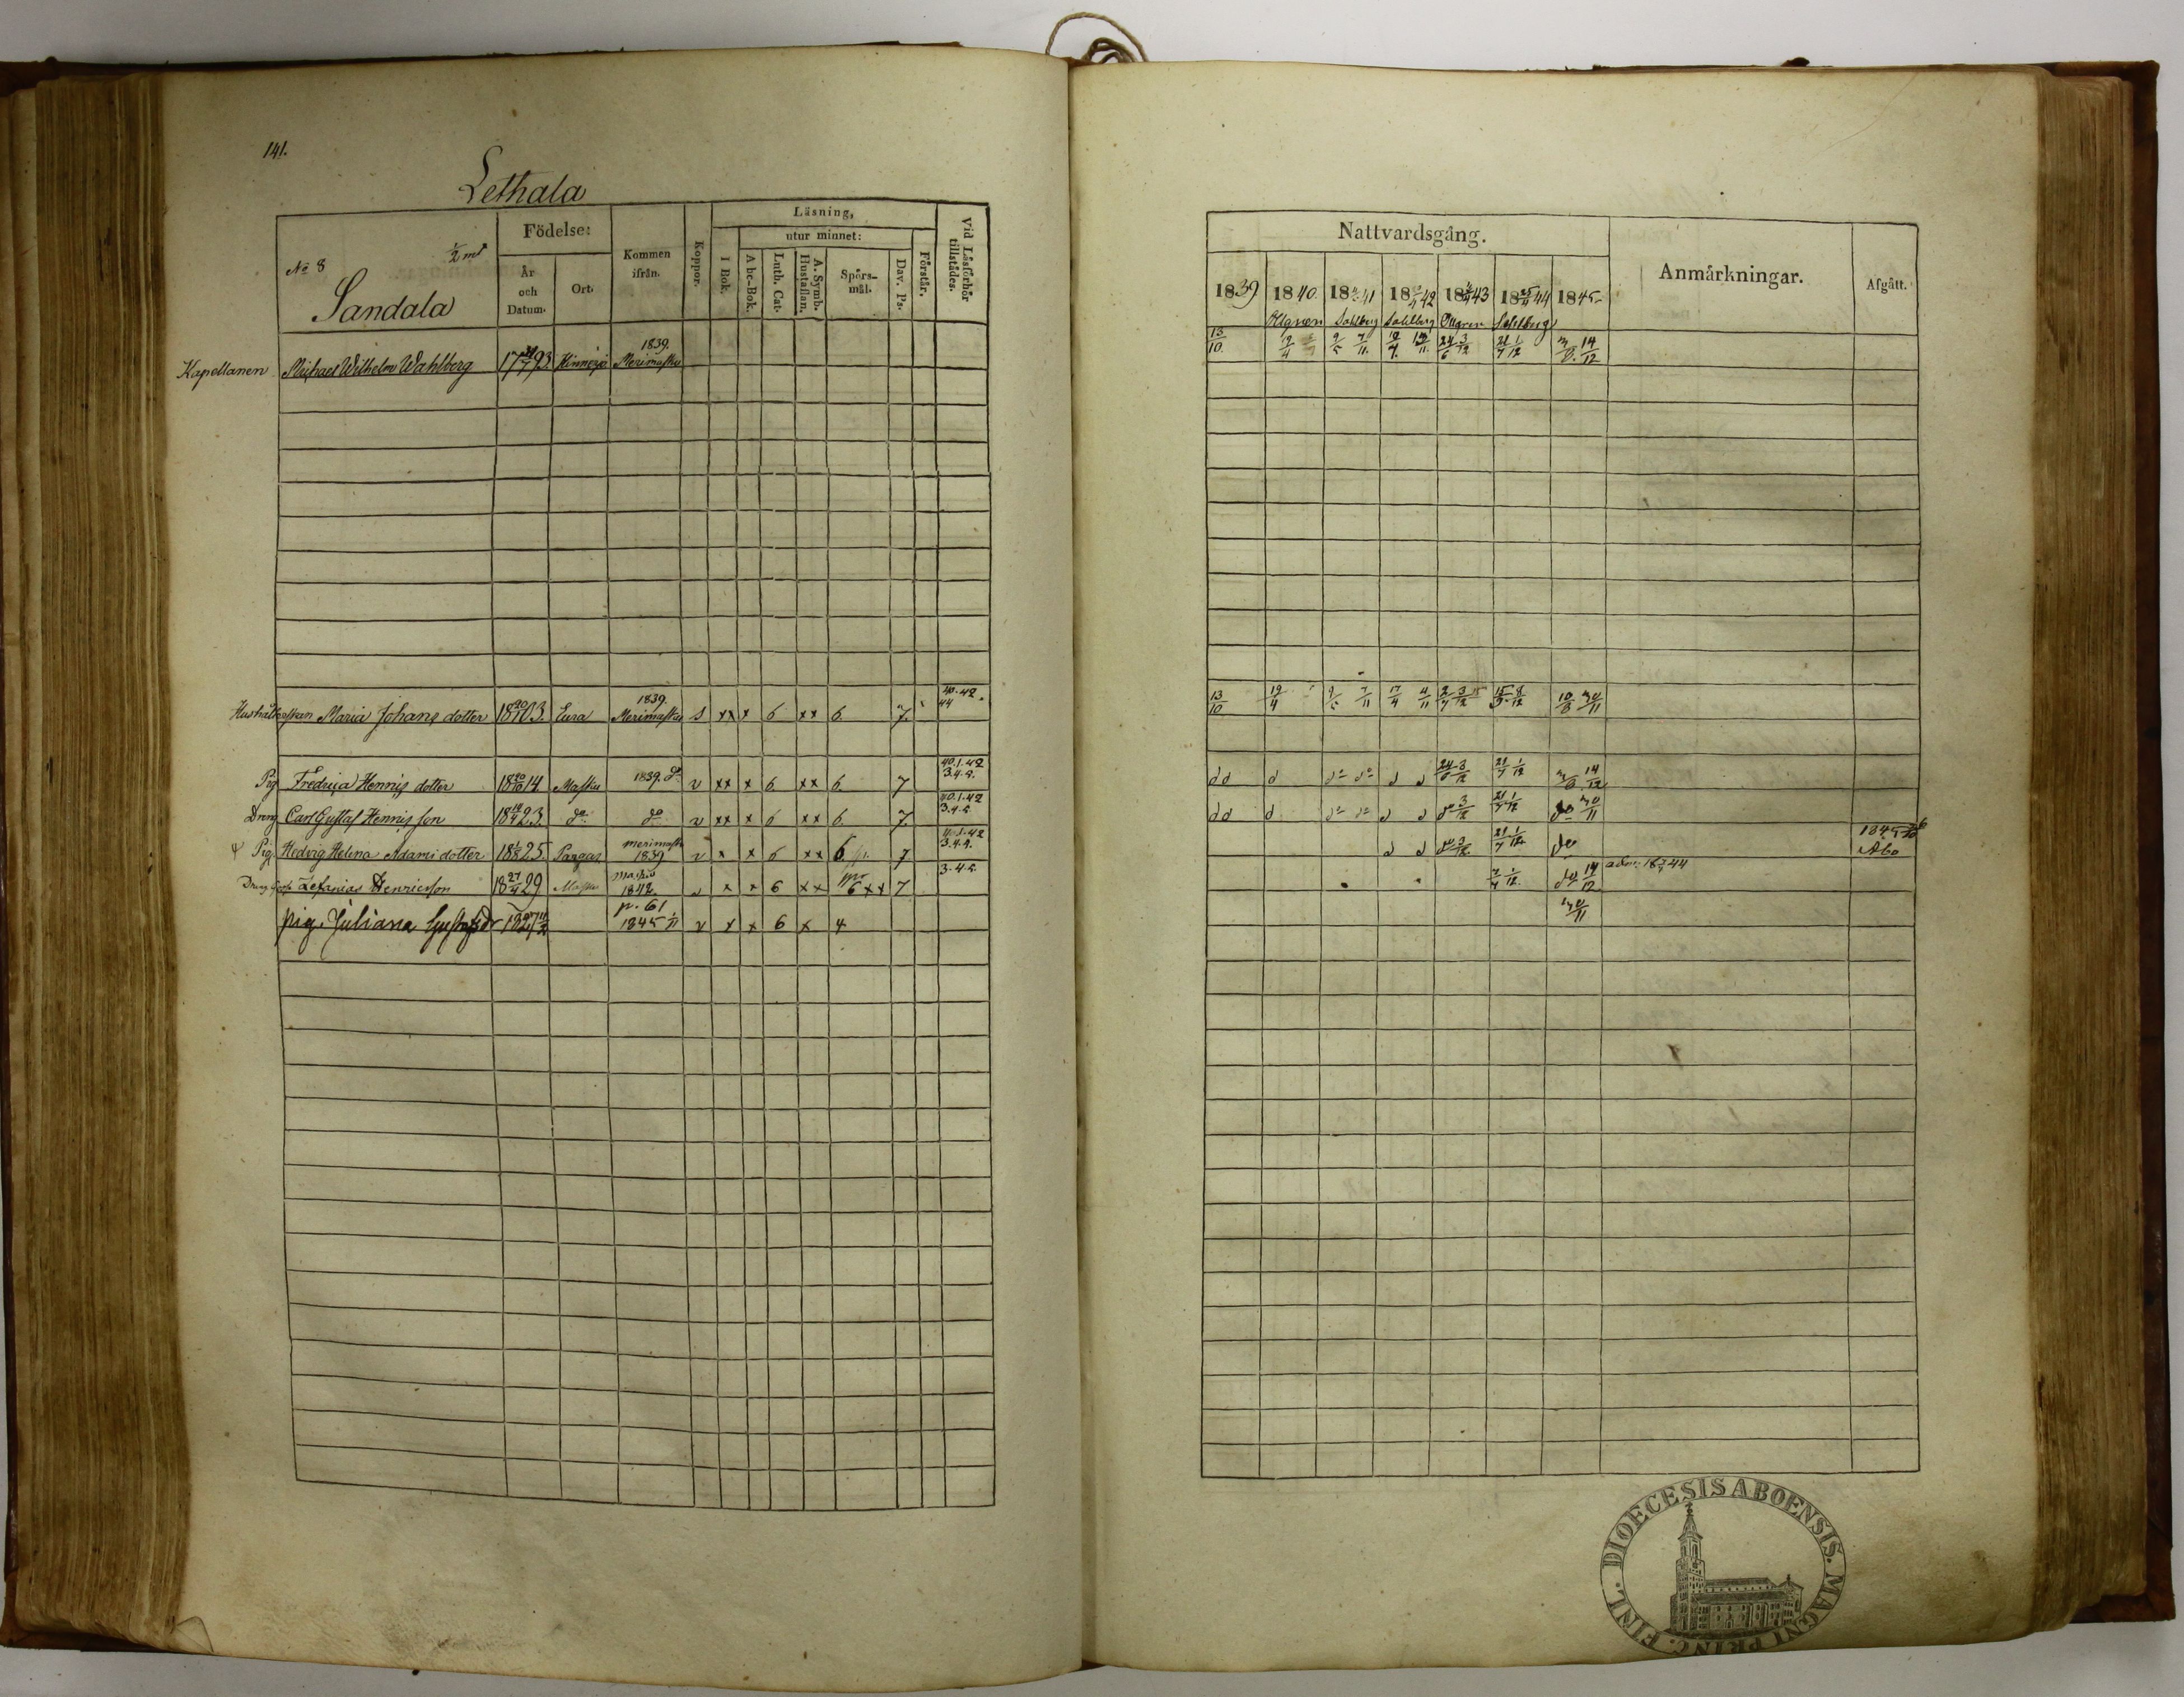 141.
Lethala
No 8 1/2 mt
Sandala
Födelse:
År och Datum.
Ort.
Kommen ifrån.
Koppor.
Läsning,
utur minnet:
I Bok.
A bc-Bok.
Luth. Cat.
A. Symb. Hustaflan.
Spörsmål.
Dav. Ps.
Förstår.
Vid Läsförhör tillstädes.
Kapellanen Michael Wilhelm Wahlberg 17 93 Merimasku 1839.
Hushållerskan Maria Johans dotter 18 20/10 03. Eura 1839. Merimasku s xx x 6 xx 6. 7. 40.42. 44
Pig. Fredrica Henrics dotter 18 20/10 14. Masku 1839. do v xx x 6 xx 6. 7 40.1.42 3.4.5.
Dreng Carl Gustaf Henrics son 18 23. do do v xx x 6 xx 6. 7. 40.1.42 3.4.5
Pig. Hedvig Helena Adami dotter 18 25. Pargas merimask 1839 v x x 6 xx 6 7 3.4.4.
Dreng Zefanias Henricsson 18 27/4 29 Masku masku 1842. v x x 6 xx 6 xx 7 3.4.5.
pig. Juliana Gustafsdr 1827 p. 61 1845 1/11 v x x 6 x 4
Nattvardsgång.
Anmärkningar.
Afgått.
1839 1840 18 41 18 42 18 43 18 25/4 44 1845
Ottgren Sahlberg Sahlberg Ottgren Sahlberg
13/10. 12/4 9/5 7/11. 12/4. 13/11 24/6 3/12 21/7 1/12 14/12
13/10 12/4 9/5 7/11 17/4 4/11 2/7 3/12 15 8/12 10/8 30/11
d d d do do d d 24/6 3/12 21/7 1/12 14/12
d d d do do d d do 3/12 21/7 1/12 do 30/11
d d do 3/12. 21/7 1/12 do 1845 Åbo
7/7 1/12. do 14/12 adm: 18 44
30/11
FINL. DIOECESIS ABOENSIS. MAGNI PRINC.